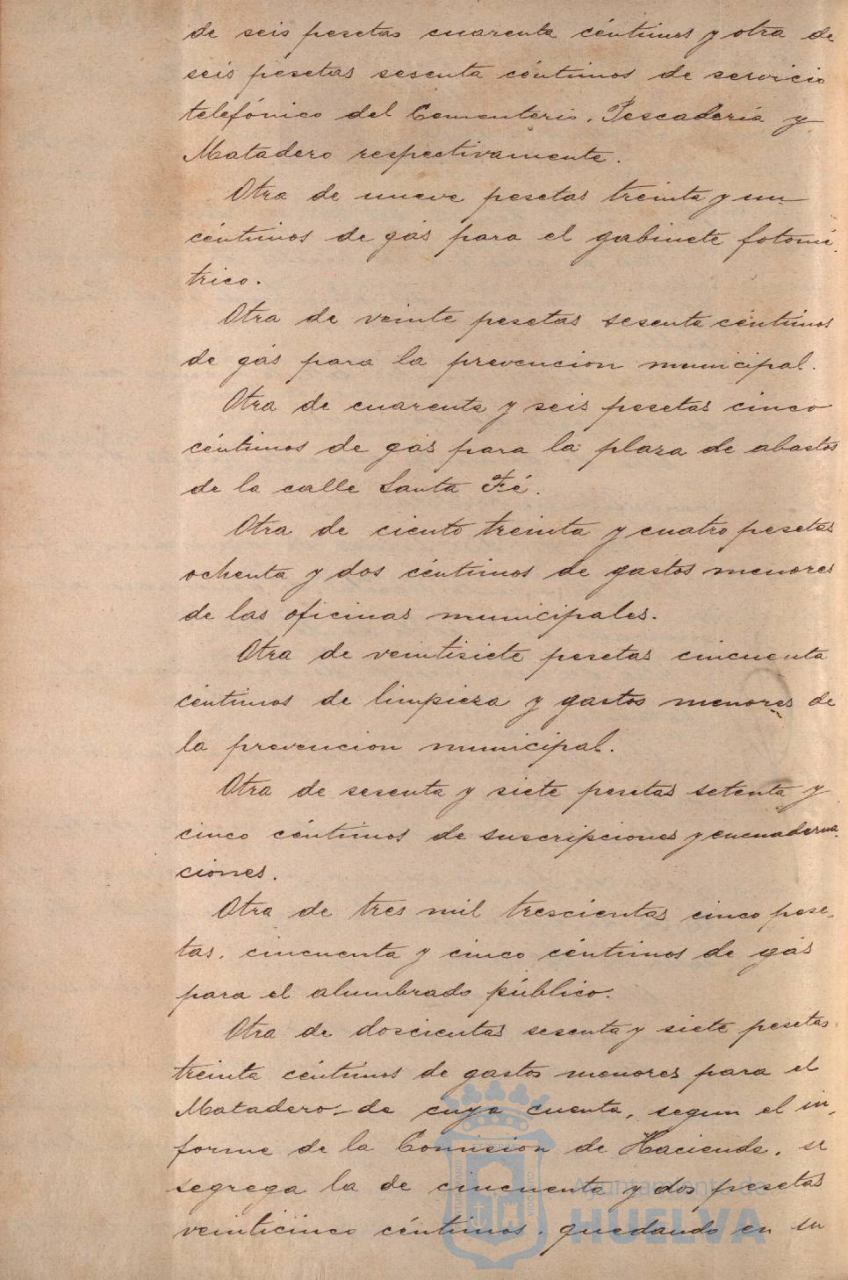 de seis pesetas cuarenta céntimos y otra de
seis pesetas sesenta céntimos de servicio
telefónico del Cementerio, Pescadería y
Matadero respectivamente.
Otra de nueve pesetas treinta y un
céntimos de gás para el gabinete fotomé-
trico.
Otra de veinte pesetas sesenta céntimos
de gás para la prevencion municipal.
Otra de cuarenta y seis pesetas cinco
céntimos de gás para la plaza de abastos
de la calle Santa Fé.
Otra de ciento treinta y cuatro pesetas
ochenta y dos céntimos de gastos menores
de las oficinas municipales.
Otra de veintisiete pesetas cincuenta
céntimos de limpieza y gastos menores de
la prevencion municipal.
Otra de sesenta y siete pesetas setenta y
cinco céntimos de suscripciones y encuaderna-
ciones.
Otra de tres mil trescientas cinco pese-
tas, cincuenta y cinco céntimos de gás
para el alumbrado público.
Otra de doscientas sesenta y siete pesetas
treinta céntimos de gastos menores para el
Matadero, de cuya cuenta, segun el in-
forme de la Comisión de Hacienda, se
segrega la de cincuenta y dos pesetas
veinticinco céntimos, quedando en su
Ayuntamiento de
HUELVA